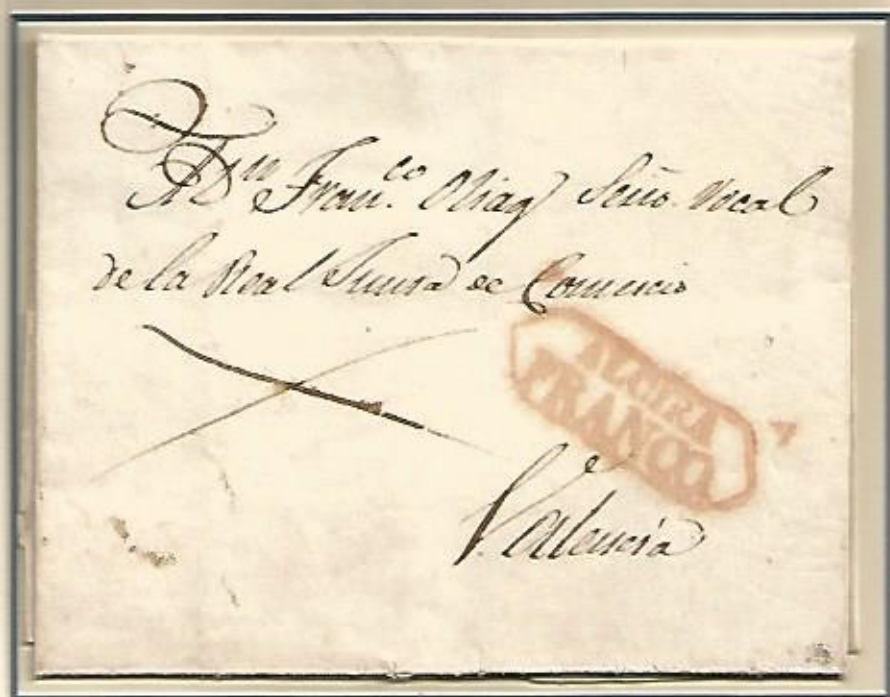 A Dn Franco. Oliag Seño. Vocal
de la Real Junta de Comercio
ALCIRA
FRANCO.
Valencia